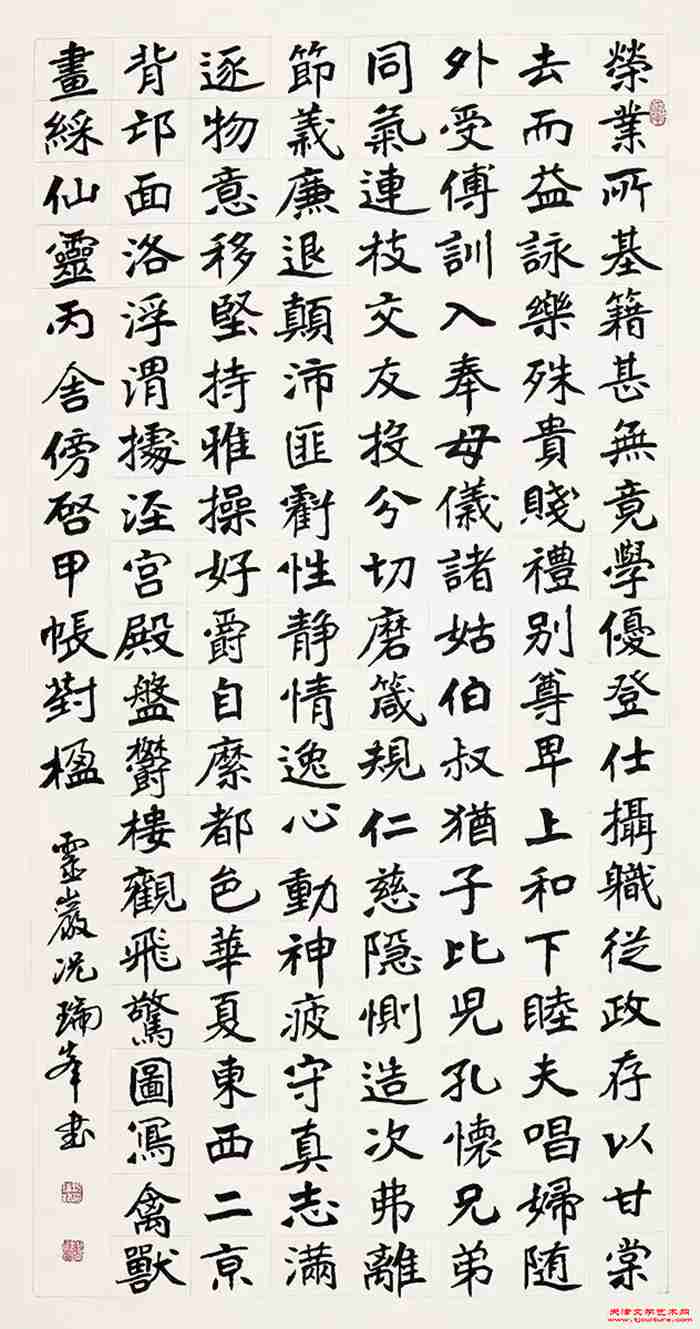 榮業所基籍甚無竟學優登仕攝職從政存以甘棠
去而益詠樂殊貴賤禮別尊卑上和下睦夫唱婦随
外受傅訓入奉母儀諸姑伯叔猶子比兒孔懷兄弟
同氣連枝交友投分切磨箴規仁慈隱惻造次弗離
節義廉退顛沛匪虧性静情逸心動神疲守真志滿
逐物意移堅持雅操好爵自縻都邑華夏東西二京
背邙面洛浮渭據涇宮殿盤鬱樓觀飛驚圖寫禽獸
畫綵仙靈丙舍傍啓甲帳對楹
靈巖况瑞峯書
天津文学艺术网
www.tjculture.com